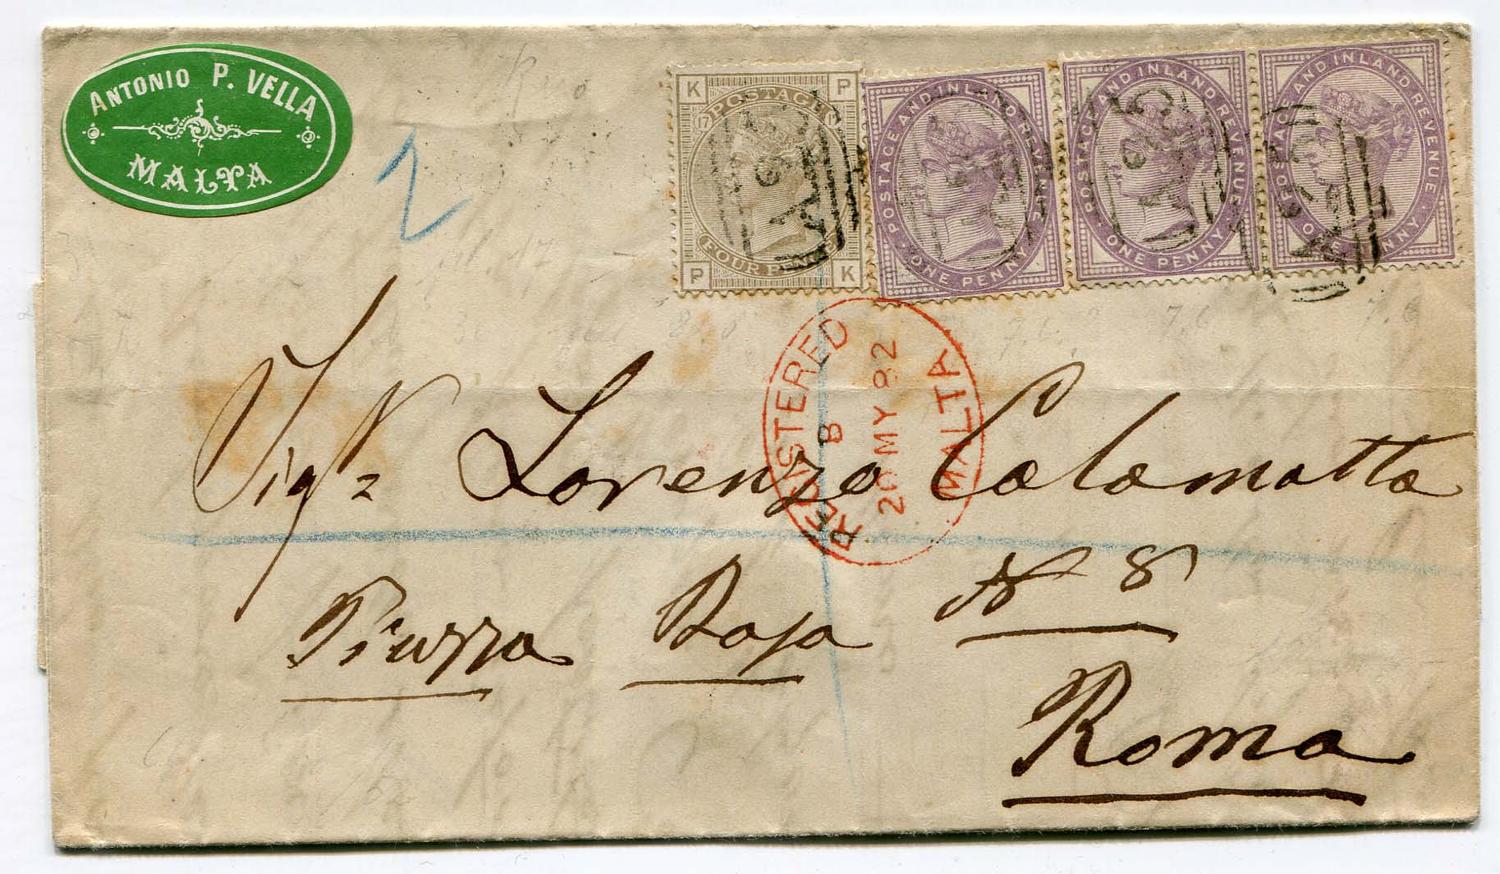 ANTONIO P. VELLA
MALTA
2
K P
POSTAGE
17
FOUR PENCE
P K
POSTAGE AND INLAND REVENUE
ONE PENNY
POSTAGE AND INLAND REVENUE
ONE PENNY
POSTAGE AND INLAND REVENUE
ONE PENNY
A25
A25
A25
A25
REGISTERED
B
20 MY 82
MALTA
Sigr Lorenzo Calamatta
Piazza Rosa N 8
Roma